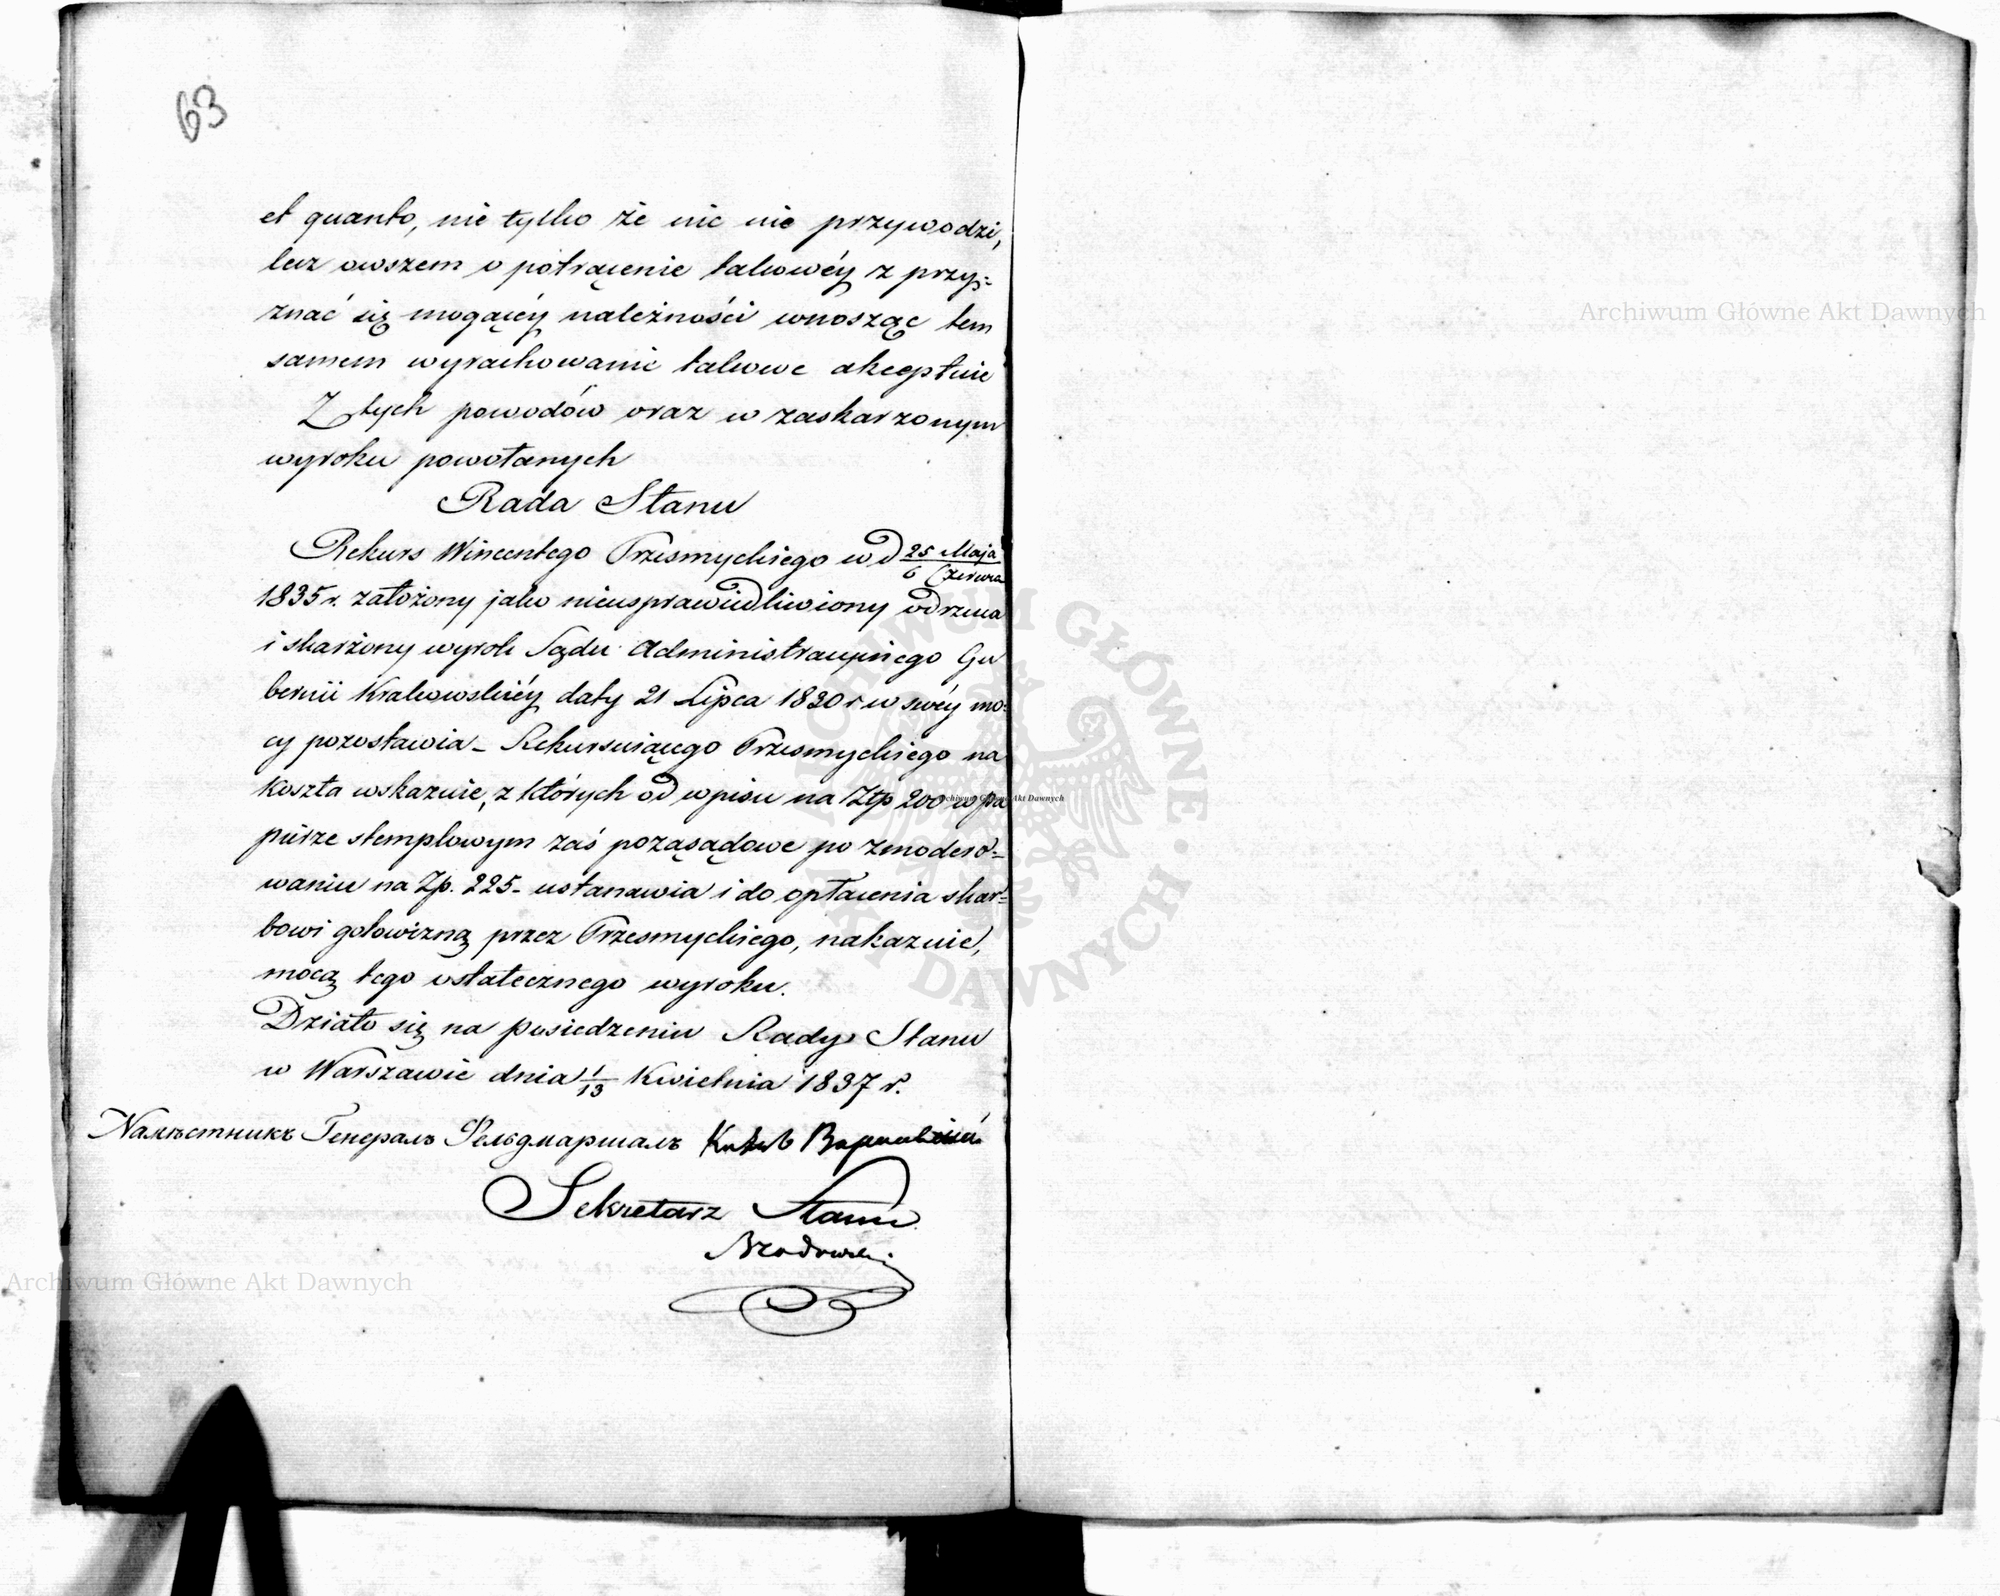 63
et quanto, nie tylko że nic nie przywodzi,
lecz owszem o potrącenie takowéy z przy=
znać się mogącéy należności wnosząc tem
samem wyrachowanie takowe akceptuie
Z tych powodów oraz w zaskarzonym
wyroku powołanych
Rada Stanu
Rekurs Wincentego Przesmyckiego w d 25 Maja / 6 Czerwca
1835 r. założony jako nieusprawiedliwiony odrzuca
i skarżony wyrok Sądu Administracyinego Gu
bernii Krakowskiéy daty 21 Lipca 1830 r w swéy mo=
cy pozostawia – Rekursuiącego Przesmyckiego na
koszta wskazuie, z których od wpisu na Złp 200 w pa
pierze stemplowym zaś pozasądowe po zmodero=
waniu na Zp. 225 – ustanawia i do opłacenia skar=
bowi gotowizną przez Przesmyckiego, nakazuie,
mocą tego ostatecznego wyroku.
Działo się na posiedzeniu Rady Stanu
w Warszawie dnia 1/13 Kwietnia 1837 r.
Намѣстникъ Генералъ Фельдмаршалъ Князь Варшавскій
Sekretarz Stanu
Brodowski
Archiwum Główne Akt Dawnych
Archiwum Główne Akt Dawnych
Archiwum Główne Akt Dawnych
ARCHIWUM GŁÓWNE · AKT DAWNYCH ·